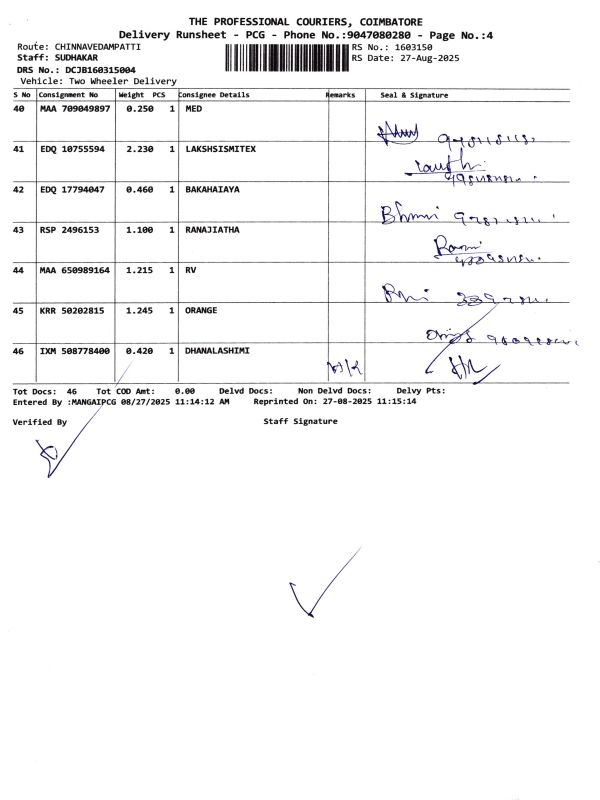 THE PROFESSIONAL COURIERS, COIMBATORE
Delivery Runsheet - PCG - Phone No.:9047080280 - Page No.:4
Route: CHINNAVEDAMPATTI RS No.: 1603150
Staff: SUDHAKAR RS Date: 27-Aug-2025
DRS No.: DCJB160315004
Vehicle: Two Wheeler Delivery
S No Consignment No Weight PCS Consignee Details Remarks Seal & Signature
40 MAA 709049897 0.250 1 MED
41 EDQ 10755594 2.230 1 LAKSHSISMITEX
42 EDQ 17794047 0.460 1 BAKAHAIAYA
43 RSP 2496153 1.100 1 RANAJIATHA
44 MAA 650989164 1.215 1 RV
45 KRR 50202815 1.245 1 ORANGE
46 IXM 508778400 0.420 1 DHANALASHIMI
Tot Docs: 46 Tot COD Amt: 0.00 Delvd Docs: Non Delvd Docs: Delvy Pts:
Entered By :MANGAIPCG 08/27/2025 11:14:12 AM Reprinted On: 27-08-2025 11:15:14
Verified By Staff Signature